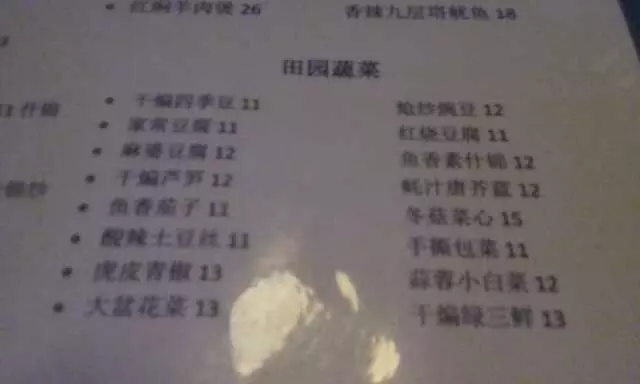 红焖羊肉煲 26
香辣九层塔鱿鱼 18
田园蔬菜
干煸四季豆 11
炝炒豌豆 12
家常豆腐 11
红烧豆腐 11
麻婆豆腐 12
鱼香素什锦 12
干煸芦笋 12
蚝汁唐芥蓝 12
鱼香茄子 11
冬菇菜心 15
酸辣土豆丝 11
手撕包菜 11
虎皮青椒 13
蒜蓉小白菜 12
大盆花菜 13
干煸绿三鲜 13
什锦